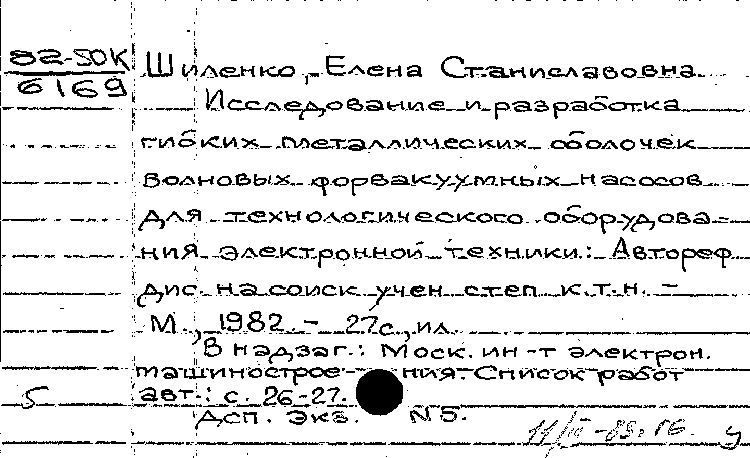 82-50К
6169
Шиленко, Елена Станиславовна
Исследование и разработка
гибких металлических оболочек
волновых форвакуумных насосов
для технологического оборудова-
ния электронной техники: Автореф
дис. на соиск учен степ к.т.н. -
М., 1982. - 27с., ил.
В надзаг.: Моск. ин-т электрон.
машинострое- ния. Список работ
авт.: с. 26-27.
5
ДСП. Экз. N5.